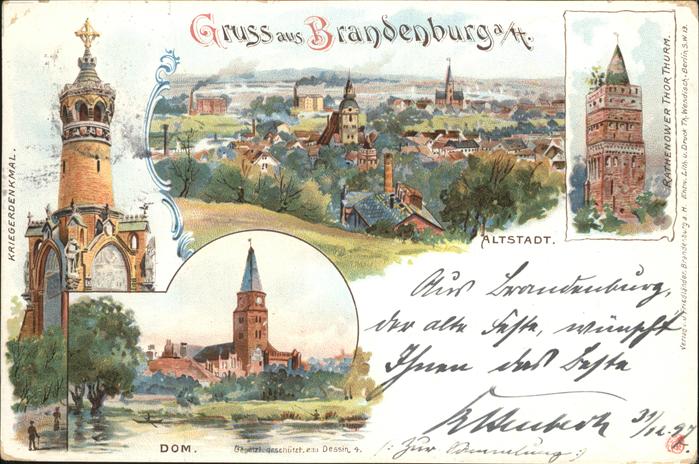 Gruss aus Brandenburg a/H.
KRIEGERDENKMAL.
ALTSTADT.
RATHENOWER THORTHURM.
Verlag von Friedländer, Brandenburg a H. Entw. Lith. u. Druck Th. Wendisch, Berlin, S.W. 13.
DOM.
Gesetzl. geschützt. Dessin. 4.
Aus Brandenburg,
der alte Feste, wünscht
Ihnen das Beste
31/12. 97
(: Zur Sammlung :)